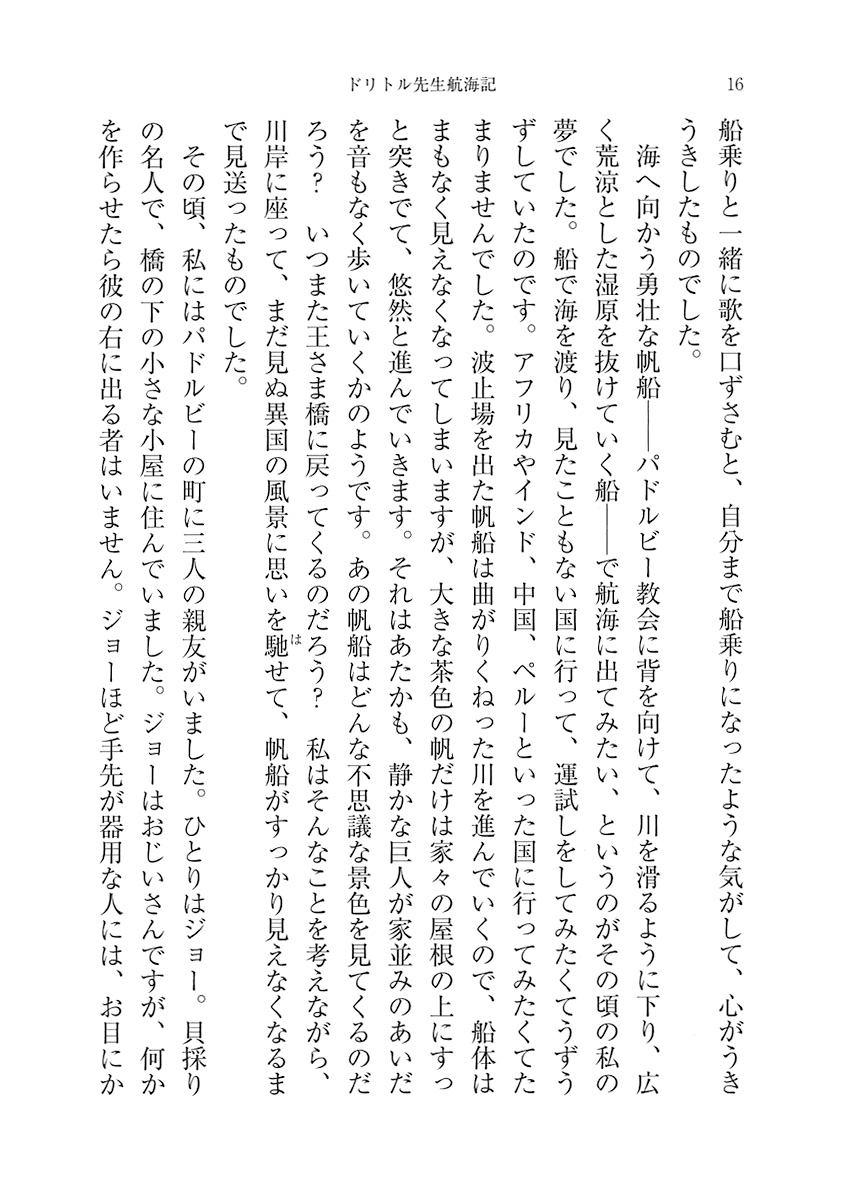 ドリトル先生航海記
16
船乗りと一緒に歌を口ずさむと、自分まで船乗りになったような気がして、心がうき
うきしたものでした。
海へ向かう勇壮な帆船――パドルビー教会に背を向けて、川を滑るように下り、広
く荒涼とした湿原を抜けていく船――で航海に出てみたい、というのがその頃の私の
夢でした。船で海を渡り、見たこともない国に行って、運試しをしてみたくてうずう
ずしていたのです。アフリカやインド、中国、ペルーといった国に行ってみたくてた
まりませんでした。波止場を出た帆船は曲がりくねった川を進んでいくので、船体は
まもなく見えなくなってしまいますが、大きな茶色の帆だけは家々の屋根の上にすっ
と突きでて、悠然と進んでいきます。それはあたかも、静かな巨人が家並みのあいだ
を音もなく歩いていくかのようです。あの帆船はどんな不思議な景色を見てくるのだ
ろう？　いつまた王さま橋に戻ってくるのだろう？　私はそんなことを考えながら、
川岸に座って、まだ見ぬ異国の風景に思いを馳はせて、帆船がすっかり見えなくなるま
で見送ったものでした。
その頃、私にはパドルビーの町に三人の親友がいました。ひとりはジョー。貝採り
の名人で、橋の下の小さな小屋に住んでいました。ジョーはおじいさんですが、何か
を作らせたら彼の右に出る者はいません。ジョーほど手先が器用な人には、お目にか